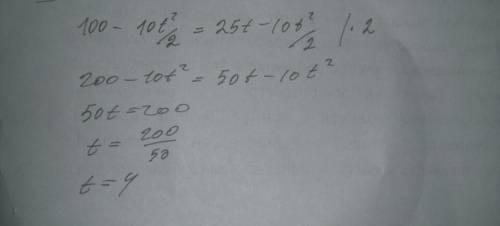 100 - 10t²/2 = 25t - 10t²/2 / · 2
200 - 10t² = 50t - 10t²
50t = 200
t = 200/50
t = 4